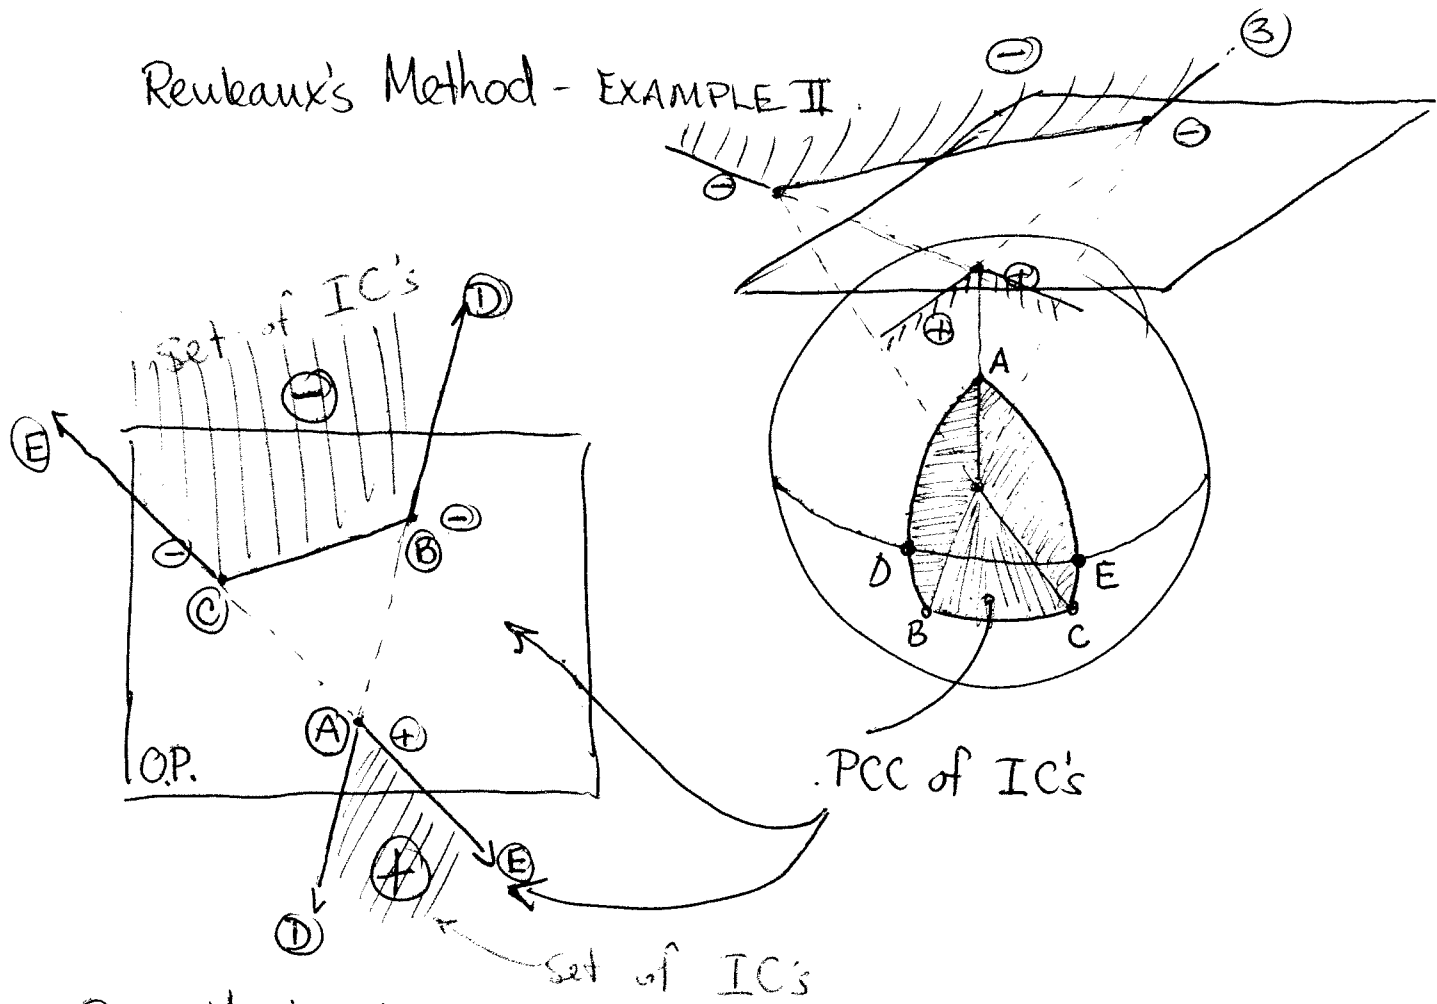 Reuleaux's Method - EXAMPLE II.
-
3
-
-
Set of IC's
-
D
E
-
C
B -
A +
O.P.
+
E
D
Set of IC's
+
+
A
D
E
B
C
PCC of IC's